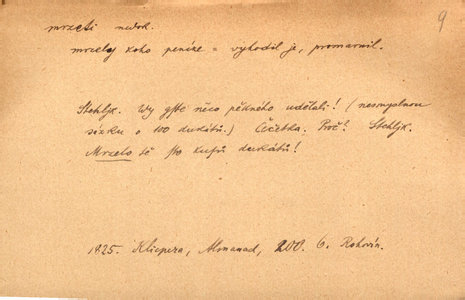 mrzeti nedok. 9
mrzely koho peníze = vyhodil je, promarnil.
Stehljk. Wy gste něco pěkného udělali! (nesmyslnou
sázku o 100 dukátů.) Čečetka. Proč? Stehljk.
Mrzelo tě sto kusů dukátů!
1825. Klicpera, Almanach, 200. 6. Rohovín.